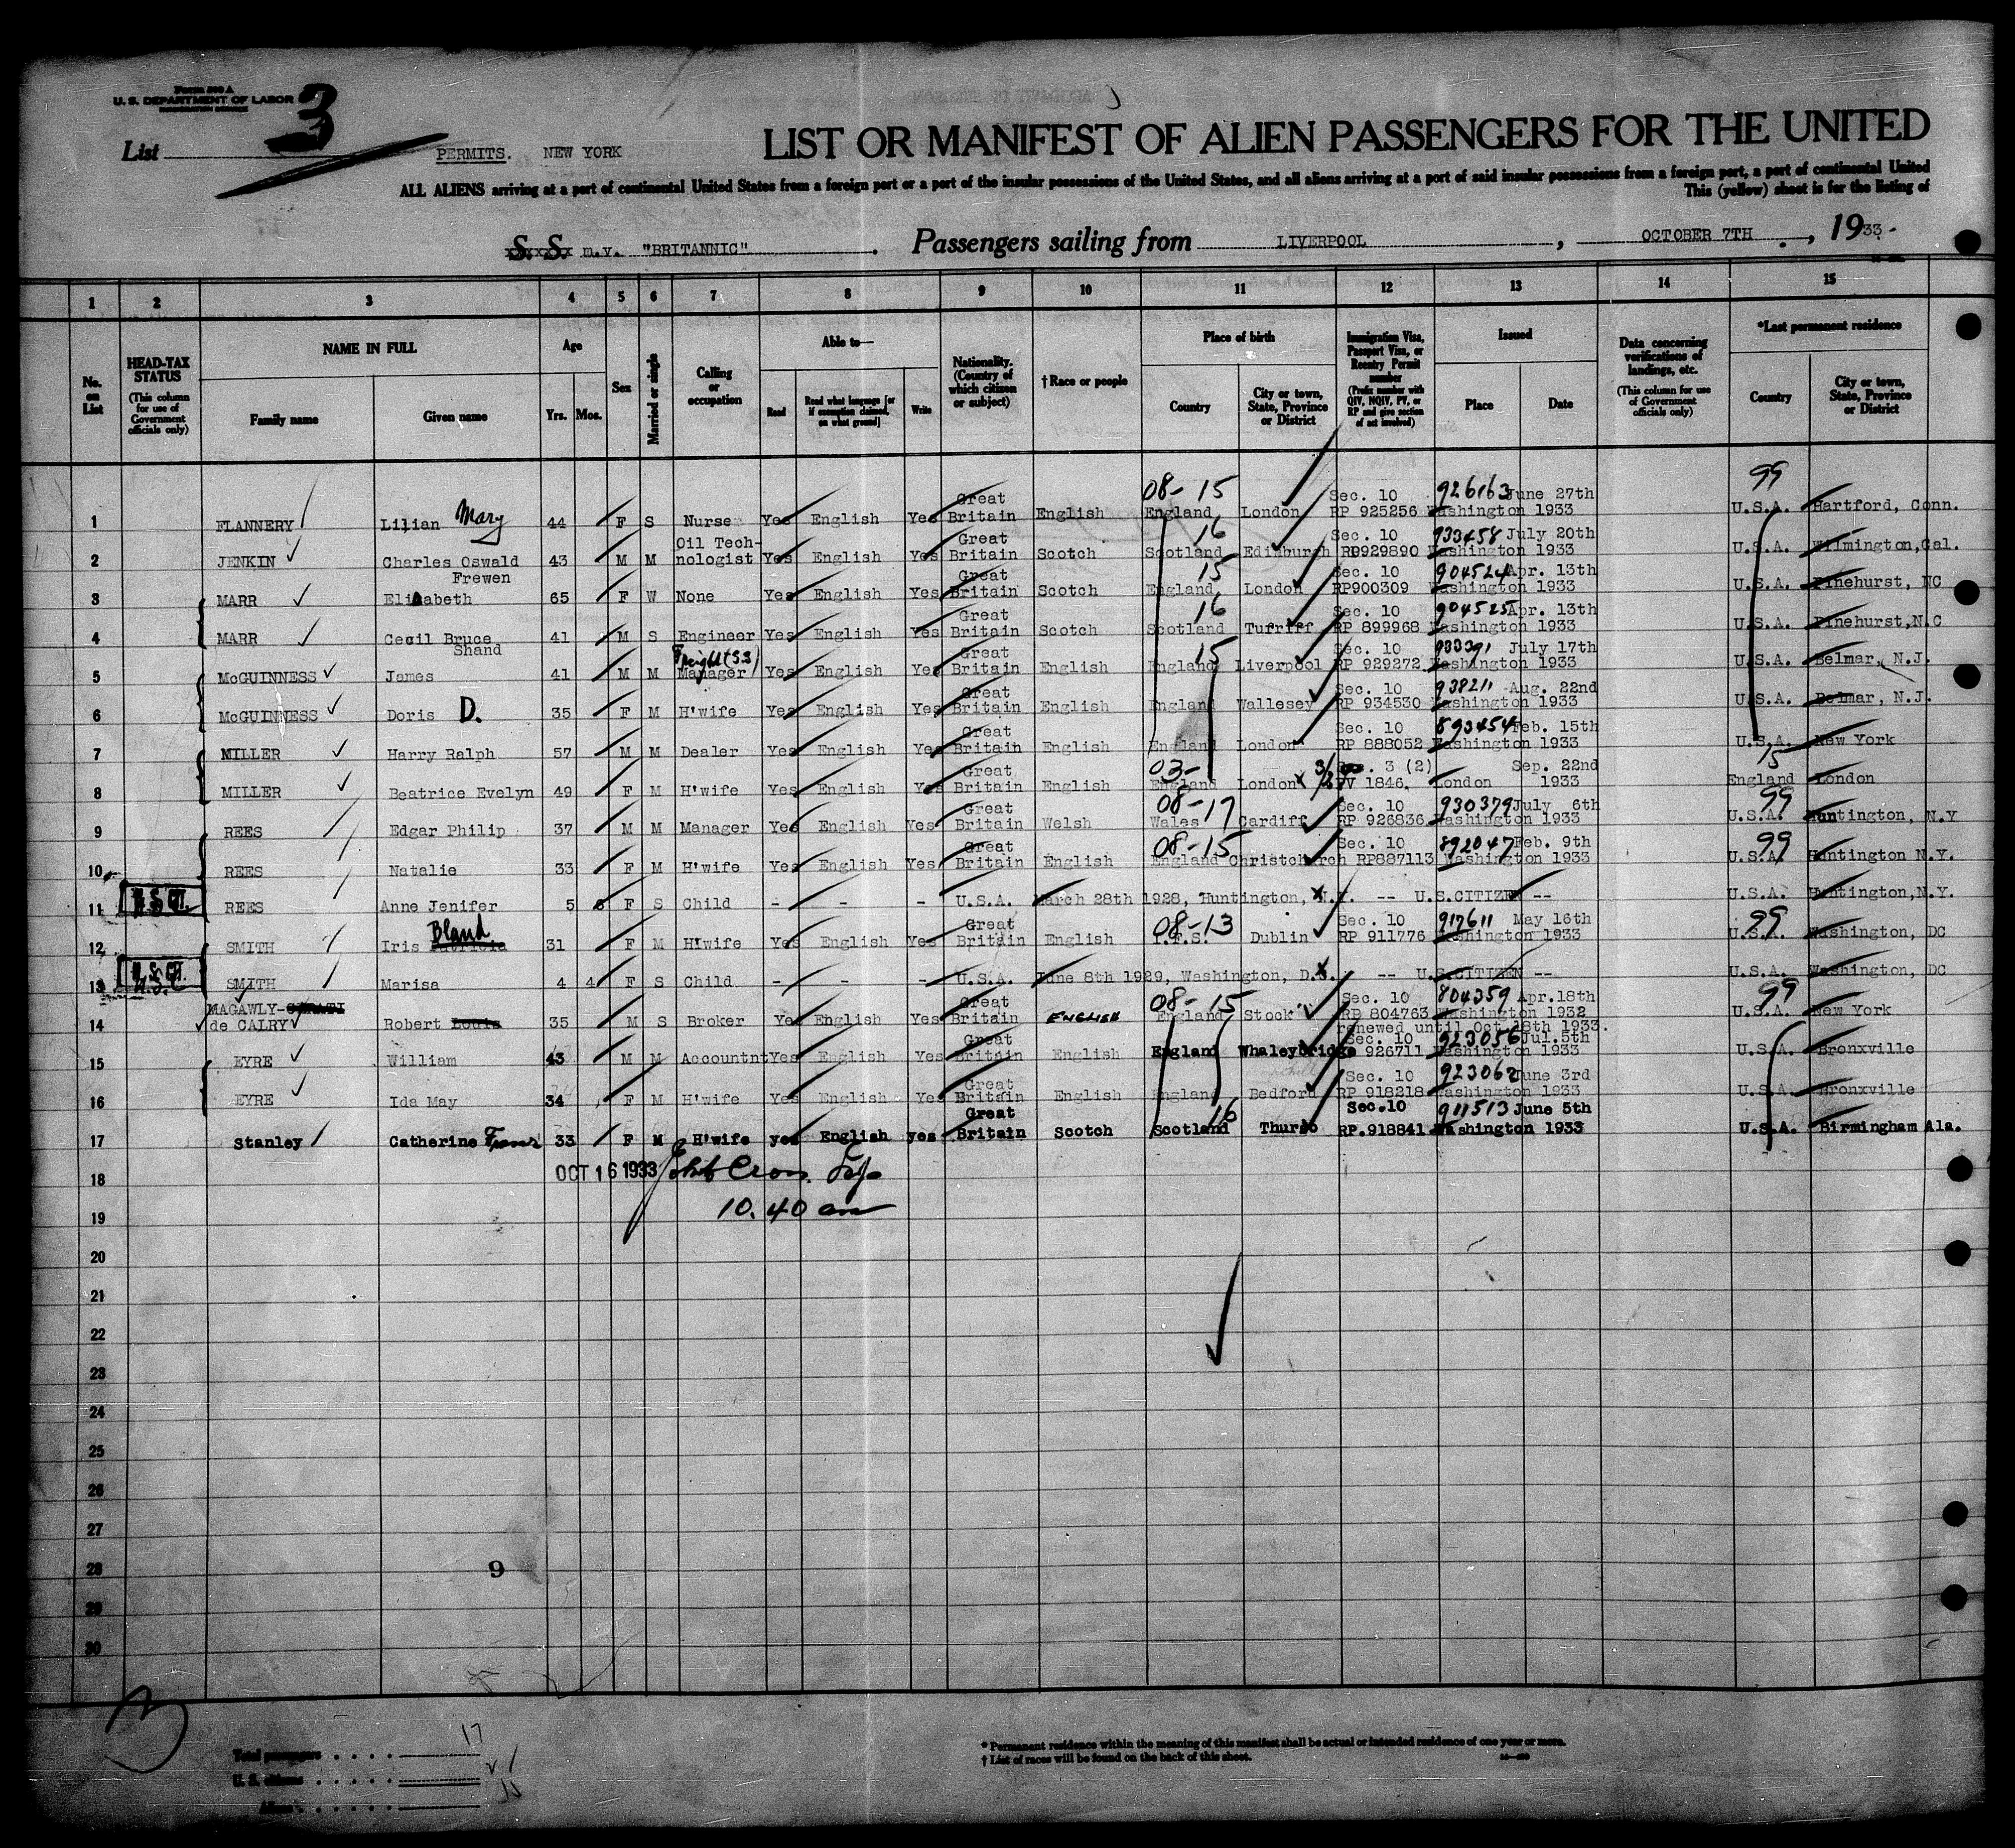 Form 500 A
U. S. DEPARTMENT OF LABOR
3
List
PERMITS. NEW YORK
LIST OR MANIFEST OF ALIEN PASSENGERS FOR THE UNITED
ALL ALIENS arriving at a port of continental United States from a foreign port or a port of the insular possessions of the United States, and all aliens arriving at a port of said insular possessions from a foreign port, a port of continental United
This (yellow) sheet is for the listing of
S. S. m.v. "BRITANNIC" . Passengers sailing from LIVERPOOL , OCTOBER 7TH , 1933
1 2 3 4 5 6 7 8 9 10 11 12 13 14 15
No. on List
HEAD-TAX STATUS (This column for use of Government officials only)
NAME IN FULL
Family name Given name
Age
Yrs. Mos.
Sex
Married or single
Calling or occupation
Able to—
Read Read what language [or if exemption claimed, on what ground] Write
Nationality. (Country of which citizen or subject)
†Race or people
Place of birth
Country City or town, State, Province or District
Immigration Visa, Passport Visa, or Reentry Permit number (Prefix number with QIV, NQIV, PV, or RP and give section of act involved)
Issued
Place Date
Data concerning verifications of landings, etc. (This column for use of Government officials only)
*Last permanent residence
Country City or town, State, Province or District
08-15 99
1 FLANNERY Lilian Mary 44 F S Nurse Yes English Yes Great Britain English England London Sec. 10 RP 925256 926163 Washington June 27th 1933 U.S.A. Hartford, Conn.
2 JENKIN Charles Oswald Frewen 43 M M Oil Technologist Yes English Yes Great Britain Scotch 16 Scotland Edinburgh Sec. 10 RP929890 933458 Washington July 20th 1933 U.S.A. Wilmington,Cal.
3 MARR Elizabeth 65 F W None Yes English Yes Great Britain Scotch 15 England London Sec. 10 RP900309 904524 Washington Apr. 13th 1933 U.S.A. Pinehurst, NC
4 MARR Cecil Bruce Shand 41 M S Engineer Yes English Yes Great Britain Scotch 16 Scotland Turriff Sec. 10 RP 899968 904525 Washington Apr. 13th 1933 U.S.A. Pinehurst,N.C
5 McGUINNESS James 41 M M Freight (SS) Manager Yes English Yes Great Britain English 15 England Liverpool Sec. 10 RP 929272 Washington July 17th 1933 U.S.A. Belmar, N.J.
6 McGUINNESS Doris D. 35 F M H'wife Yes English Yes Great Britain English England Wallesey Sec. 10 RP 934530 938211 Washington Aug. 22nd 1933 U.S.A. Belmar, N.J.
7 MILLER Harry Ralph 57 M M Dealer Yes English Yes Great Britain English England London Sec. 10 RP 888052 893454 Washington Feb. 15th 1933 U.S.A. New York
8 MILLER Beatrice Evelyn 49 F M H'wife Yes English Yes Great Britain English 03- England London 3 (2) PV 1846. London Sep. 22nd 1933 15 England London
9 REES Edgar Philip 37 M M Manager Yes English Yes Great Britain Welsh 08-17 Wales Cardiff Sec. 10 RP 926836 930379 Washington July 6th 1933 99 U.S.A. Huntington, N.Y
10 REES Natalie 33 F M H'wife Yes English Yes Great Britain English 08-15 England Christchurch Sec. 10 RP887113 892047 Washington Feb. 9th 1933 99 U.S.A. Huntington N.Y.
11 U.S. CIT. REES Anne Jenifer 5 6 F S Child - - - U.S.A. March 28th 1928, Huntington, N.Y. -- U.S.CITIZEN -- U.S.A. Huntington,N.Y.
12 SMITH Iris Bland 31 F M H'wife Yes English Yes Great Britain English 08-13 I.F.S. Dublin Sec. 10 RP 911776 917611 Washington May 16th 1933 99 U.S.A. Washington, DC
13 U.S. CIT. SMITH Marisa 4 4 F S Child - - - U.S.A. June 8th 1929, Washington, D.C. -- U.S.CITIZEN -- U.S.A. Washington, DC
14 MAGAWLY-CERATI de CALRY Robert Louis 35 M S Broker Yes English Yes Great Britain ENGLISH 08-15 England Stock Sec. 10 RP 804763 804359 Washington Apr.18th 1932 99 U.S.A. New York
renewed until Oct.18th 1933.
15 EYRE William 43 M M Accountnt Yes English Yes Great Britain English England Whaleybridge Sec. 10 926711 923056 Washington Jul.5th 1933 U.S.A. Bronxville
16 EYRE Ida May 34 F M H'wife Yes English Yes Great Britain English England Bedford Sec. 10 RP 918218 923062 Washington June 3rd 1933 U.S.A. Bronxville
17 Stanley Catherine 33 F M H'wife yes English yes Great Britain Scotch 16 Scotland Thurso Sec.10 RP.918841 911513 Washington June 5th 1933 U.S.A. Birmingham Ala.
18 OCT 16 1933
19 10.40 am
20
21
22
23
24
25
26
27
28 9
29
30
3
Total passengers . . . . 17
U. S. citizens . . . . .
Aliens . . . . . .
* Permanent residence within the meaning of this manifest shall be actual or intended residence of one year or more.
† List of races will be found on the back of this sheet.